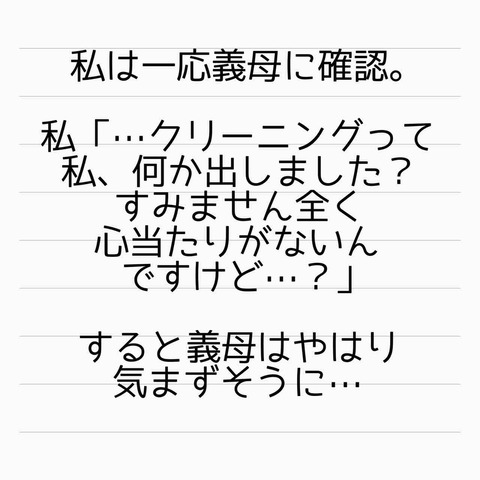 私は一応義母に確認。
私「…クリーニングって
私、何か出しました？
すみません全く
心当たりがないん
ですけど…？」
すると義母はやはり
気まずそうに…